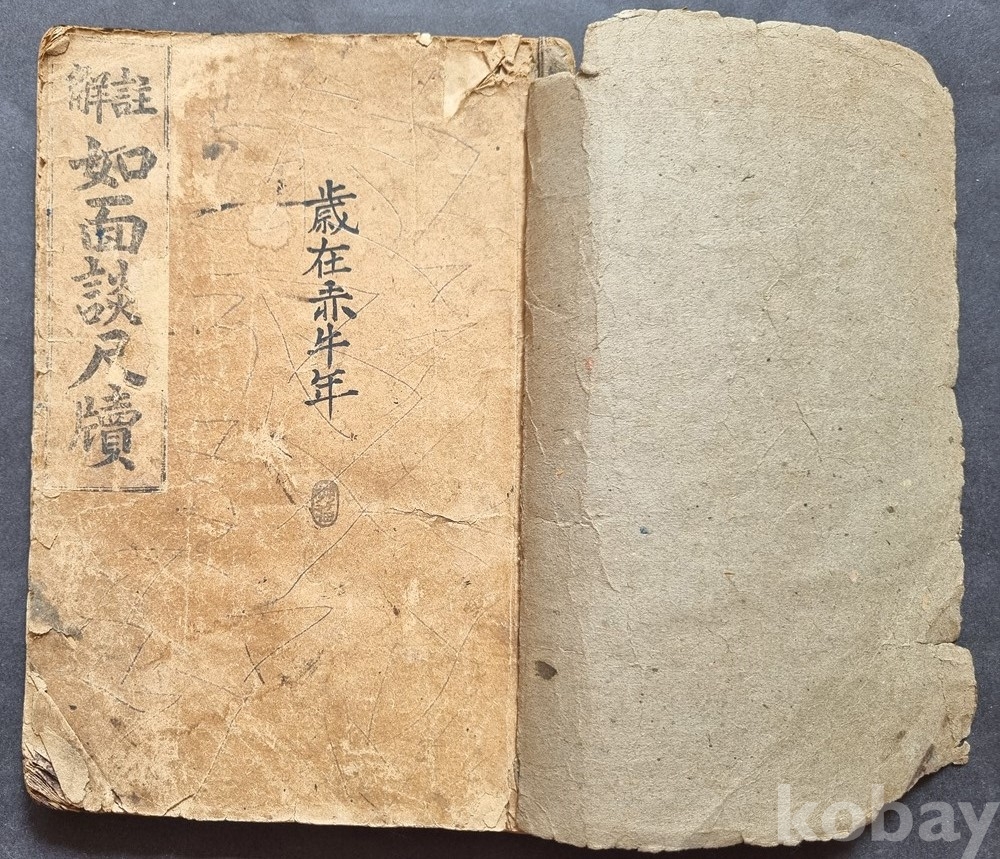 註觧
如面談尺牘
歳在赤牛年
kobay